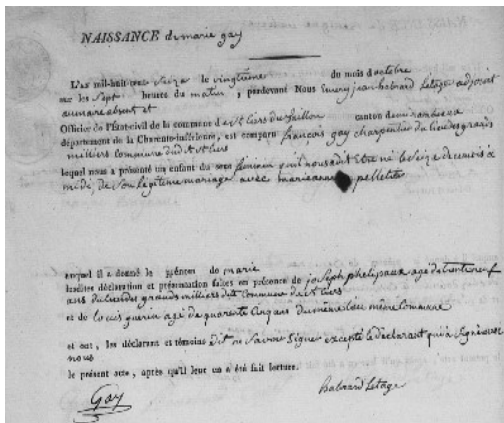 NAISSANCE de marie gay
L'AN mil-huit-cent Seize le vingtieme du mois d'octobre
sur les Sept heures du matin, pardevant Nous jean babrard Letage adjoint
au maire absent et
Officier de l'État-civil de la commune d' canton de mirambeaux
département de la Charente-Inférieure, est comparu françois gay charpentier du lieu des grands
milliers Commune dudit
lequel nous a présenté un enfant du sexe féminin qu'il nous a dit Etre né le Seize du courant à
midi, de Son légitime mariage avec marianne pelletite
auquel il a donné le prénom de marie
lesdites déclaration et présentation faites en présence de joseph phelipaux agé de trente neuf
ans du lieu des grands milliers dite Commune
et de louis guerin agé de quarante cinq ans du même lieu même Commune
et ont, les déclarans et témoins dit ne Savoir Signer excepté le déclarant qui a Signé avec
nous
le présent acte, après qu'il leur en a été fait lecture.
Gay babrard Letage